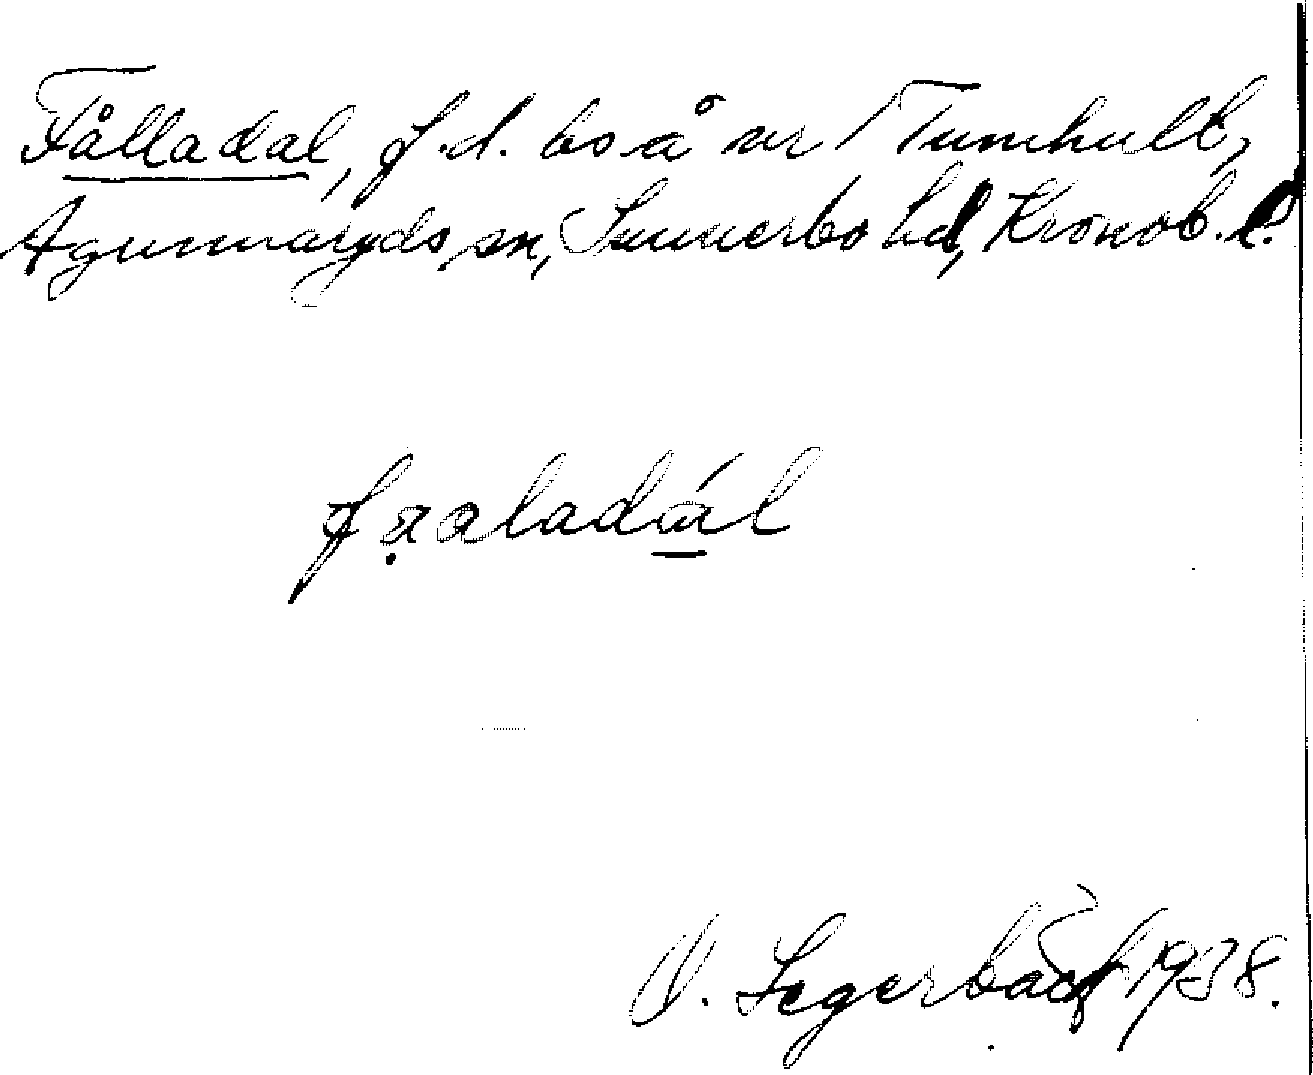 Fålladal, f.d. bs å nr 1 Tumhult,
Agunnaryds sn, Sunnerbo hd, Kronob. l.
faladál
O. Segerbäck 1938.